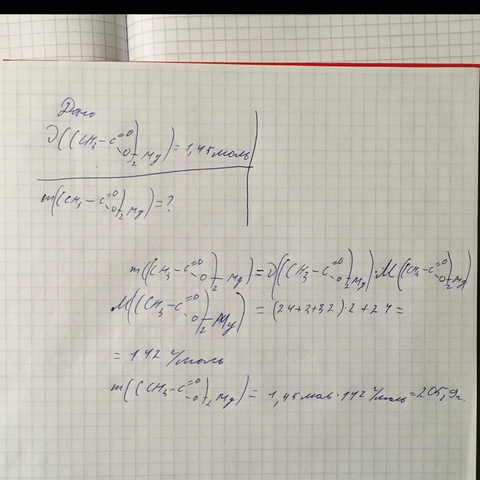 Дано
ν((CH₃–C=O–O)₂Mg) = 1,45 моль
m((CH₃–C=O–O)₂Mg) = ?
m((CH₃–C=O–O)₂Mg) = ν((CH₃–C=O–O)₂Mg)·M((CH₃–C=O–O)₂Mg)
M((CH₃–C=O–O)₂Mg) = (24+3+32)·2+24 =
= 142 г/моль
m((CH₃–C=O–O)₂Mg) = 1,45 моль · 142 г/моль = 205,9 г.